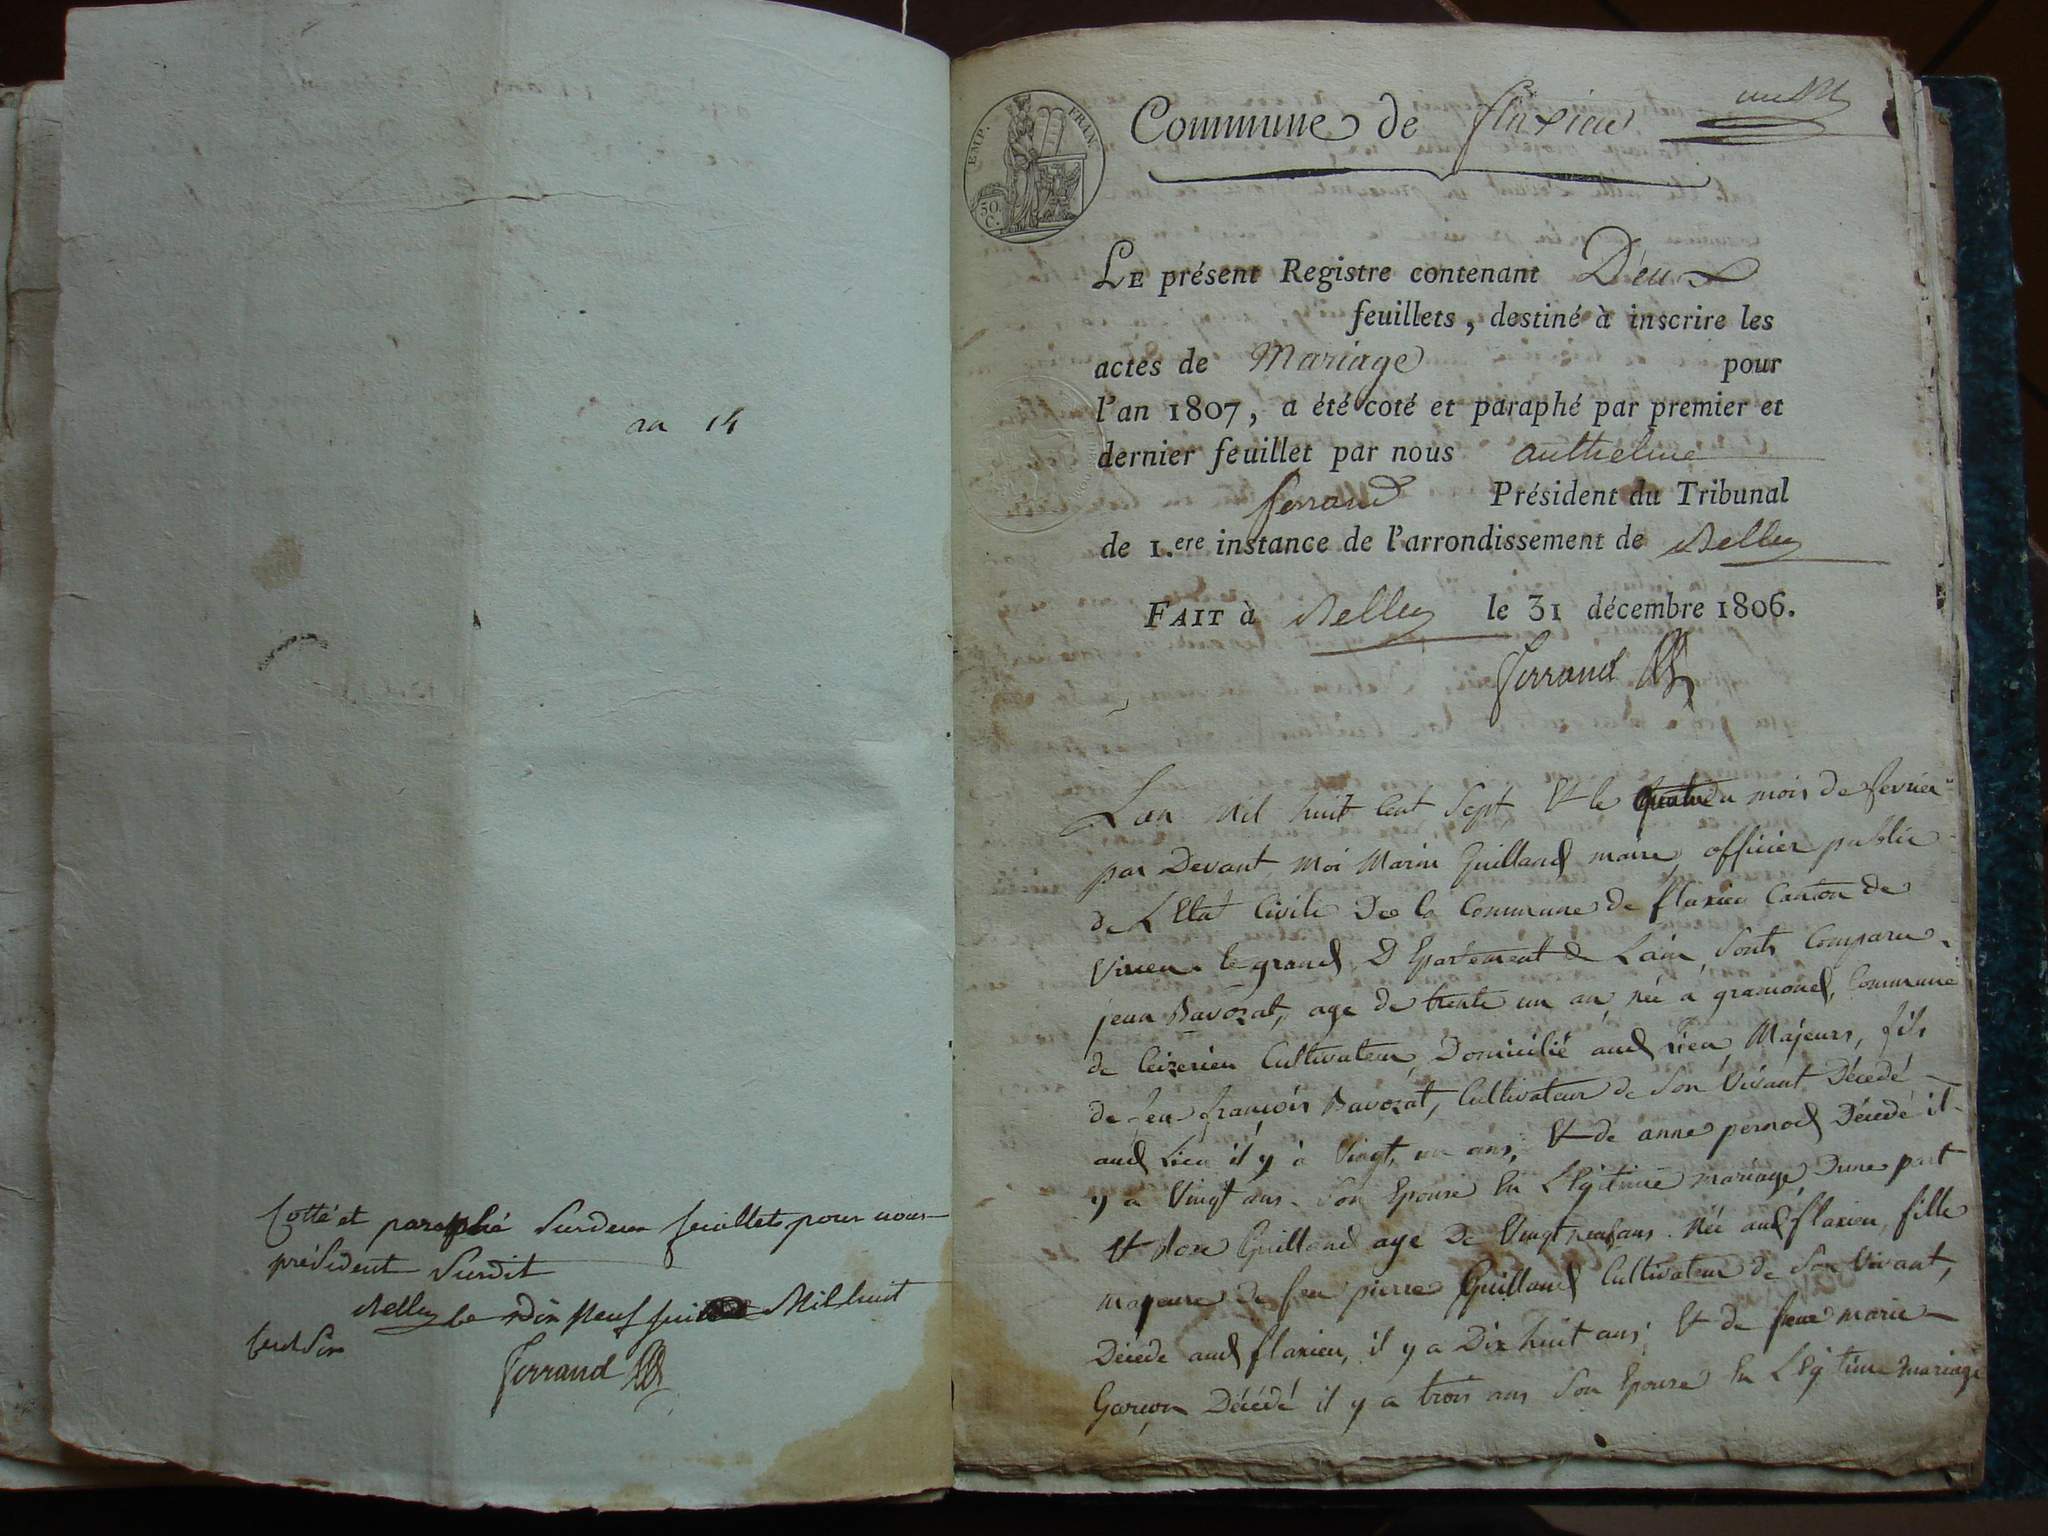 an 14
Cotté et paraphé Surdeux feuillets pour nous
président Susdit
Belley le dix Neuf Mil huit
Cent Six
Ferrand
EMP. FRAN.
50. C.
Commune de flaxieu
LE présent Registre contenant Deux
feuillets, destiné à inscrire les
actes de Mariage pour
l'an 1807, a été coté et paraphé par premier et
dernier feuillet par nous anthelme
ferrand Président du Tribunal
de 1.ere instance de l'arrondissement de Belley
FAIT à Belley le 31 décembre 1806.
Ferrand
Lan Mil huit Cent Sept, Et le du mois de fevrier
par Devant, Moi Marin Guilland maire, officier public
de L'Etat Civile De la Commune de flaxieu Canton de
Virieu le grand, D Epartement de Lain, Sonts Comparu
jean Bavozat, age de trente un an, née a gramond, Commune
de Ceizerieu Cultivateur, Domicilié aud Lieu, Majeurs, fils
de feu françois Bavozat, Cultivateur de Son Vivant Décedé
aud Lieu il y à Vingt un ans, Et de anne pernod Décedé il
y a Vingt ans. Son Epouse En LEgitime mariage Dune part
Et Guilland age De Vingt neuf ans. Née aud flaxieu, fille
majeure de feu pierre Guilland Cultivateur de Son Vivant,
Décede aud flaxieu, il y a Dix huit ans, Et de feue marie
Garçon Décédé il y a trois ans Son Epouse En LEgitime mariage